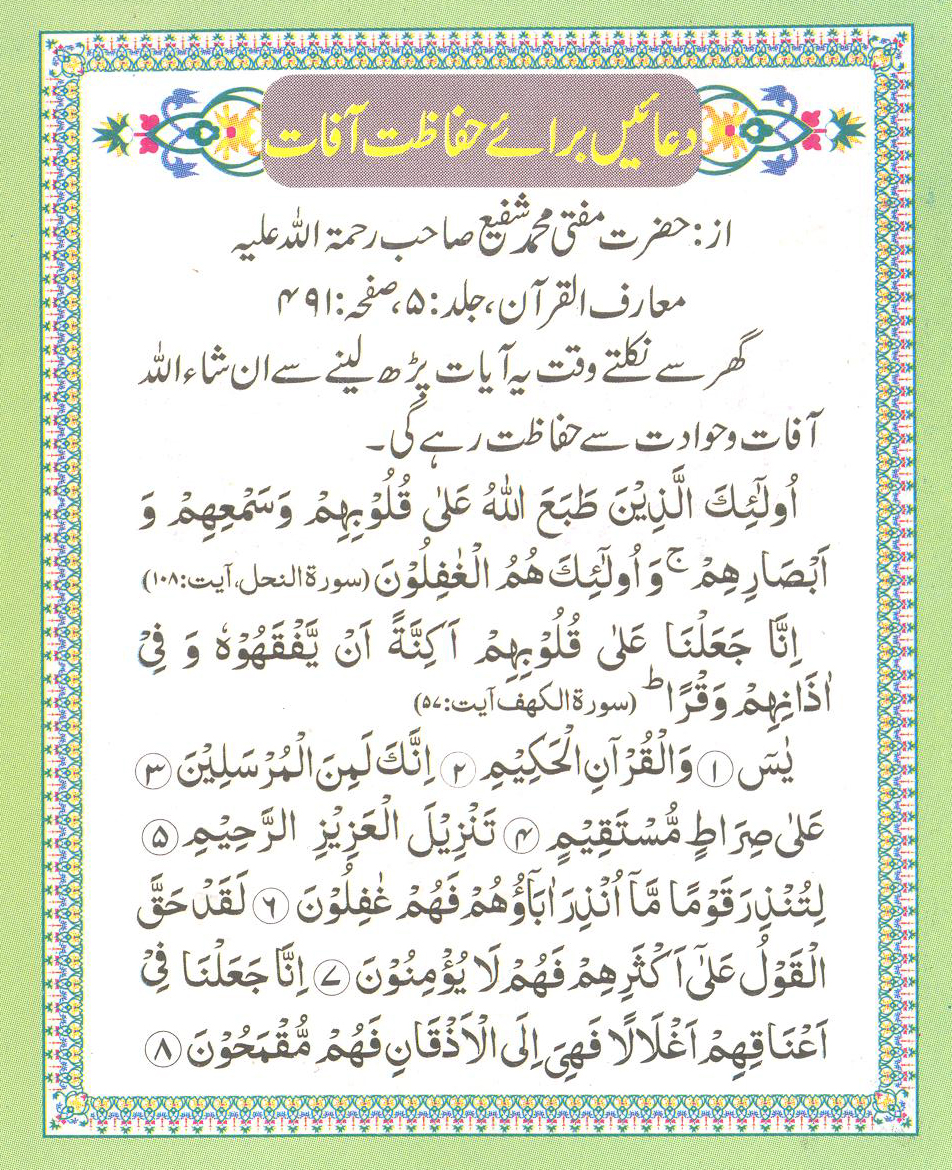 دعائیں برائے حفاظت آفات
از: حضرت مفتی محمد شفیع صاحب رحمۃ اللہ علیہ
معارف القرآن، جلد: ۵، صفحہ: ۴۹۱
گھر سے نکلتے وقت یہ آیات پڑھ لینے سے ان شاء اللہ
آفات و حوادث سے حفاظت رہے گی۔
اُولٰٓئِكَ الَّذِيْنَ طَبَعَ اللّٰهُ عَلٰى قُلُوْبِهِمْ وَسَمْعِهِمْ وَ
اَبْصَارِهِمْ ج وَ اُولٰٓئِكَ هُمُ الْغٰفِلُوْنَ (سورۃ النحل، آیت: ۱۰۸)
اِنَّا جَعَلْنَا عَلٰى قُلُوْبِهِمْ اَكِنَّةً اَنْ يَّفْقَهُوْهُ وَ فِيْ
اٰذَانِهِمْ وَقْرًا ط (سورۃ الکہف آیت: ۵۷)
يٰسٓ ۱ وَالْقُرْآنِ الْحَكِيْمِ ۲ اِنَّكَ لَمِنَ الْمُرْسَلِيْنَ ۳
عَلٰى صِرَاطٍ مُّسْتَقِيْمٍ ۴ تَنْزِيْلَ الْعَزِيْزِ الرَّحِيْمِ ۵
لِتُنْذِرَ قَوْمًا مَّآ اُنْذِرَ اٰبَآؤُهُمْ فَهُمْ غٰفِلُوْنَ ۶ لَقَدْ حَقَّ
الْقَوْلُ عَلٰٓى اَكْثَرِهِمْ فَهُمْ لَا يُؤْمِنُوْنَ ۷ اِنَّا جَعَلْنَا فِيْ
اَعْنَاقِهِمْ اَغْلَالًا فَهِيَ اِلَى الْاَذْقَانِ فَهُمْ مُّقْمَحُوْنَ ۸